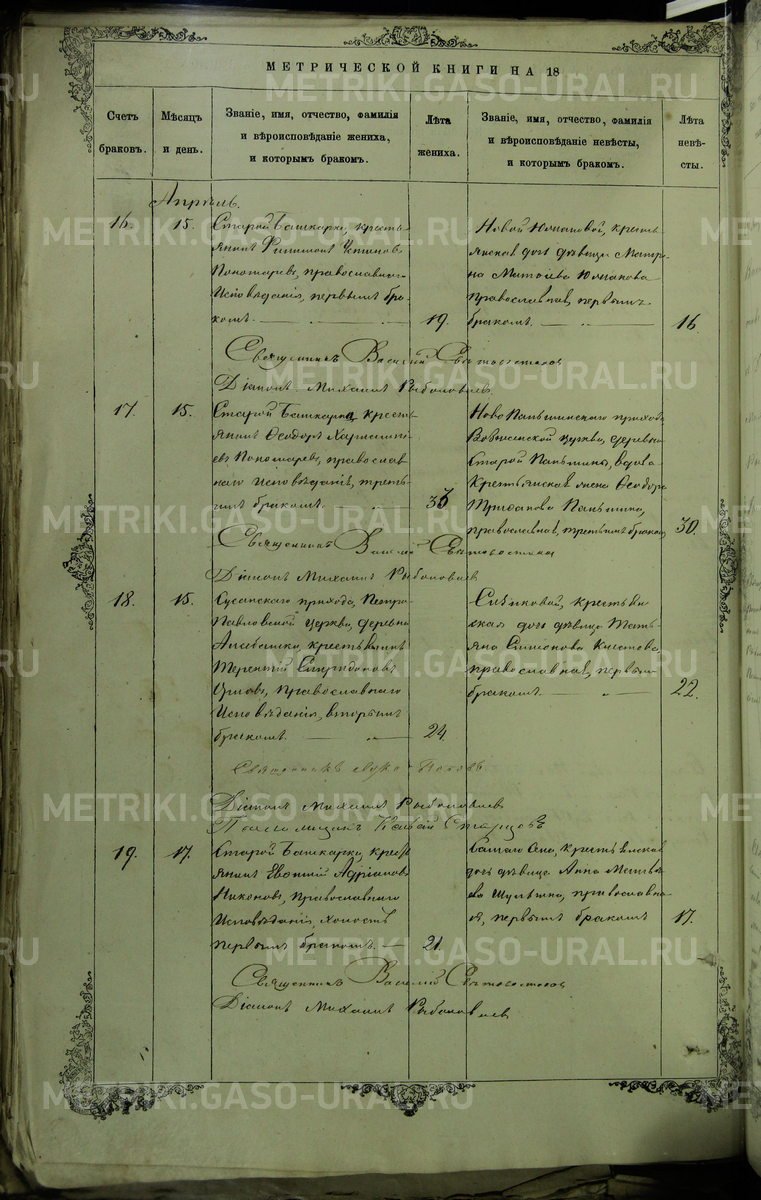 МЕТРИЧЕСКОЙ КНИГИ НА 18
Счетъ браковъ.
Мѣсяцъ и день.
Званіе, имя, отчество, фамилія и вѣроисповѣданіе жениха, и которымъ бракомъ.
Лѣта жениха.
Званіе, имя, отчество, фамилія и вѣроисповѣданіе невѣсты, и которымъ бракомъ.
Лѣта невѣсты.
Апрѣль.
16. 15.
Старой Башкарки, кресть
янинъ Филимонъ
Пономаревъ, православнаго
Исповѣданія, первымъ бра
комъ. 19.
Новой Юмановой, кресть
янская дочь дѣвица Матро
на Матѳіева Юманова
православная, первымъ
бракомъ. 16
Священникъ Василій
Діаконъ Михаилъ Рыболовлевъ
17. 15.
Старой Башкарки, кресть
янинъ Ѳеодоръ Харлампі
евъ Пономаревъ, православ
наго Исповѣданія, треть
имъ бракомъ. 33
НовоПаньшинскаго прихода
церкви, деревни
Старой Паньшины, вдова
Крестьянская жена Ѳеодора
Паньшина,
православная, третьимъ бракомъ, 30.
Священникъ Василій
Діаконъ Михаилъ Рыболовлевъ
18. 15.
Сусанскаго прихода, Петро
Павловской церкви, деревни
крестьянинъ
Терентій Спиридоновъ
Православнаго
Исповѣданія, вторымъ
бракомъ. 24.
крестьян
ская дочь дѣвица Тать
яна Симеонова
православная, первымъ
бракомъ. 22.
Священникъ
Діаконъ Михаилъ Рыболовлевъ
Старцовъ
19. 17.
Старой Башкарки, кресть
янинъ Евѳимій Адріановъ
Никоновъ, Православнаго
Исповѣданія, холостъ
первымъ бракомъ. 21.
Села, крестьянская
дочь дѣвица Анна Матвѣ
ева православна
я, первымъ бракомъ 17.
Священникъ Василій
Діаконъ Михаилъ Рыболовлевъ
METRIKI.GASO-URAL.RU